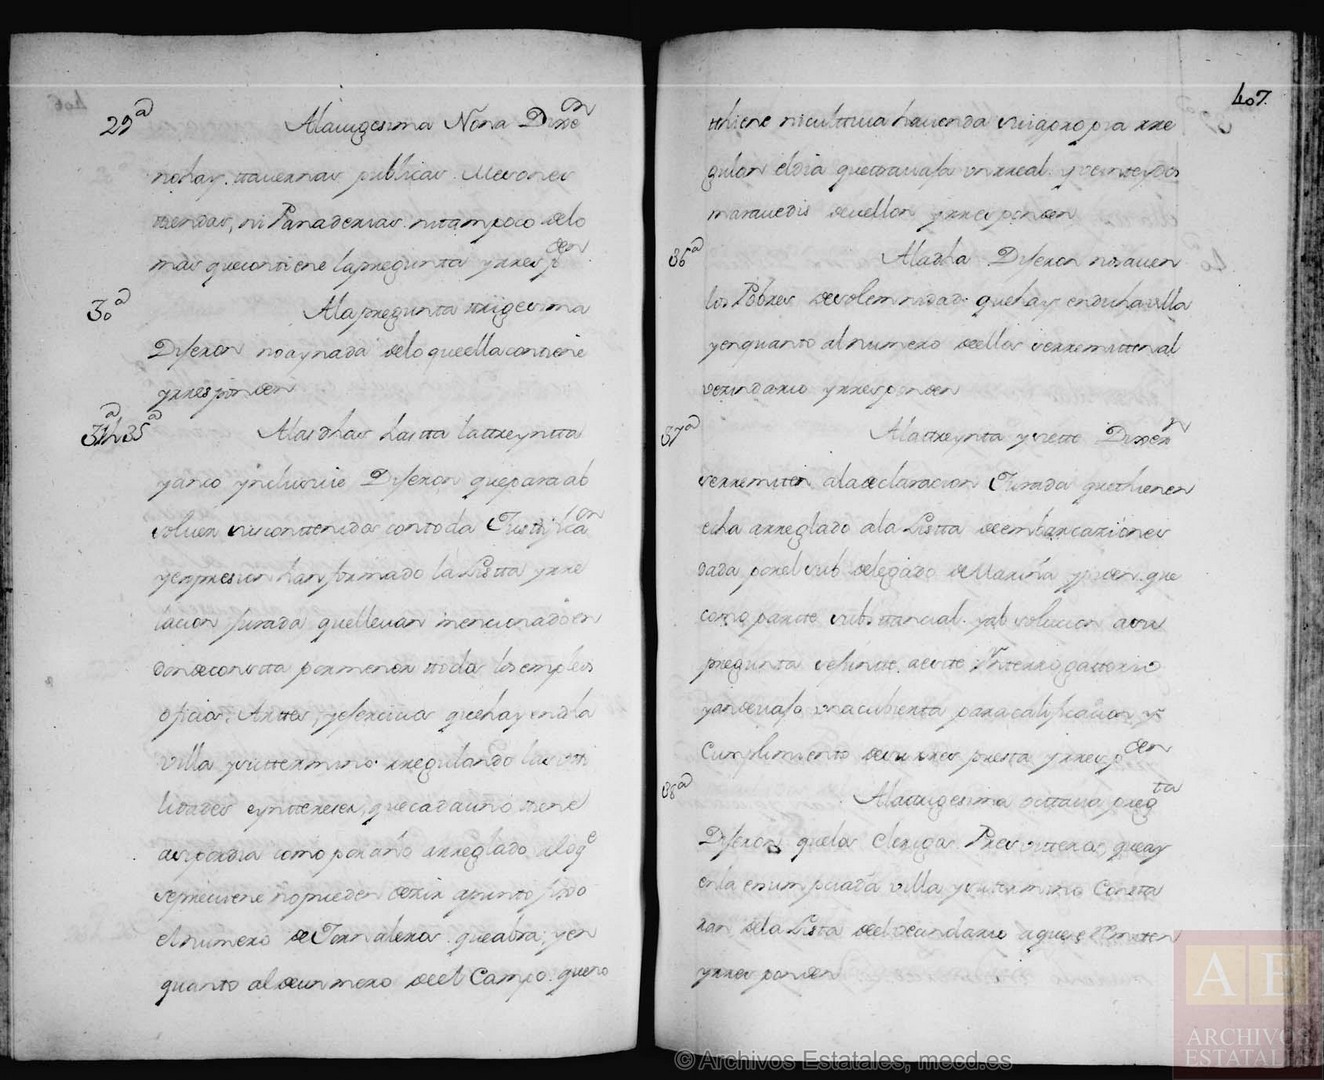 29ª Alavigesima Nona Dixeⁿ
nohay. ttavernas publicas. Mesones
ttiendas, ni Panaderias. nitampoco delo
mas quecontiene lapregunta yrrespᵈᵉⁿ
30ª Alapregunta ttrigesima
Dijeron noaynada delo queellacontiene
yrresponden
31ª h 35ª Alasdhas hastta lattreyntta
yanco ynclusive Dijeron queparaab
solver suscontenidos contoda Justtificaᵒⁿ
yexpresion han formado la Listta yrre
lacion Jurada quellevan mencionadoen
dondeconstta pormenor ttodos losempleos
oficios, Arttes, yejercicios quehayendha
villa ysuttermino. rregulando las utti
lidades eyntereses, quecadauno ttiene
asiporDia comoporaño arreglado alo qᵉ
sepreviene nopueden dezir apunto fixo
elnumero deJornaleros. queabra; yen
quanto al deunmozo deel Campo. queno
407.
tthiene nicultiva hacienda suiapropia rre
gulan eldia quettravaja unrreal. yveinteydos
maravedis devellon yrresponden
36ª Aladha Dijeron nosaven
los Pobres desolemnidad. quehay endichavilla
yenquanto alnumero deellos serremittenal
vezindario yrresponden
37ª Alattreynta ysiette Dixeroⁿ
serremiten aladeclaracion Jurada quetthienen
echa arreglado ala Listta deembarcaziones
dada porel sub delegado deMarina ypiden que
como partte substtancial. yabsolucion aesta
pregunta sejuntte aeste Ynterrogattorio
yandevajo unacubierta paracalificacion y
Cumplimiento desu rrespuesta yrrespᵈᵉⁿ
38ª Alattrigesima octtava pregᵗᵃ
Dijeron quelos Clerigos Presvitteros queay
enla enumpciada villa ysuttermino Consta
ran dela Lista del vecindario aquese Remiten
yrresponden
© Archivos Estatales, mecd.es
AE
ARCHIVOS
ESTATALES